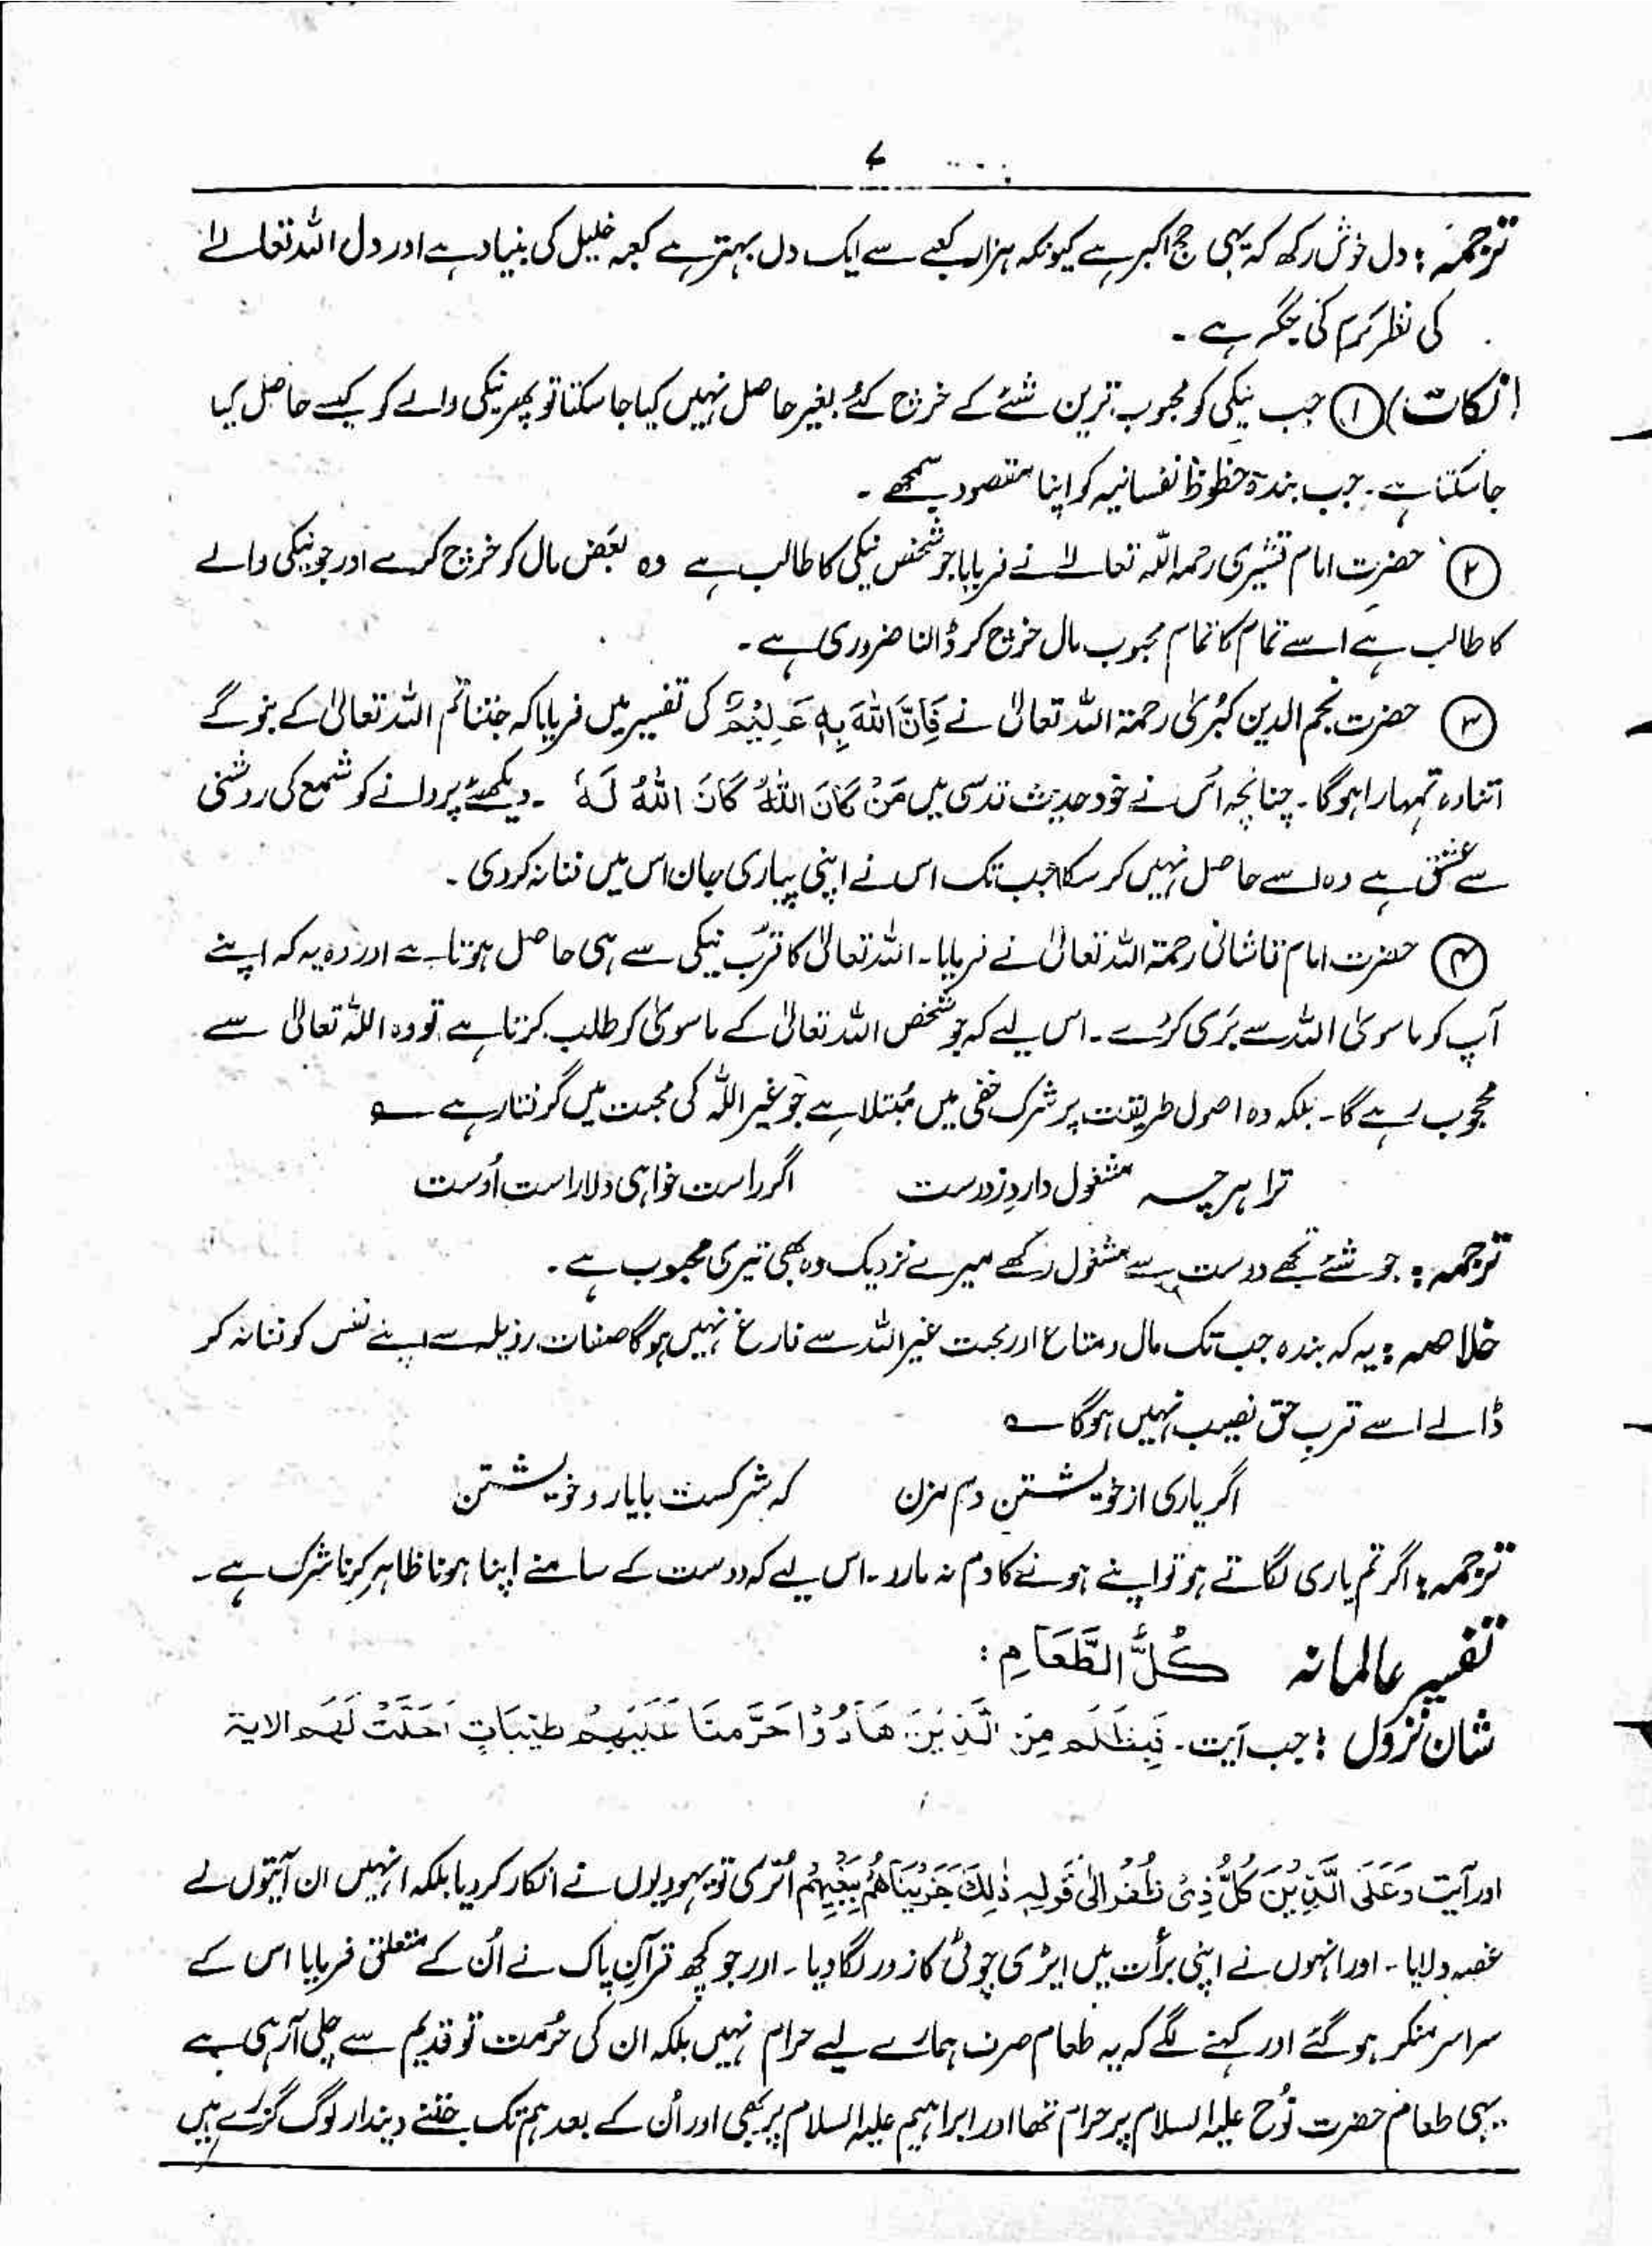 ۷
ترجمہ: دل خوش رکھ کہ یہی حج اکبر ہے کیونکہ ہزار کعبے سے ایک دل بہتر ہے کعبہ خلیل کی بنیاد ہے اور دل اللہ تعالےٰ
کی نظر کرم کی جگہ ہے۔
(نکات) ① جب نیکی کو محبوب ترین شئے کے خرچ کئے بغیر حاصل نہیں کیا جا سکتا تو پھر نیکی والے کو کیسے حاصل کیا
جا سکتا ہے۔ جب بندہ حظوظ نفسانیہ کو اپنا مقصود سمجھے۔
② حضرت امام قشیری رحمہ اللہ تعالےٰ نے فرمایا جو شخص نیکی کا طالب ہے وہ بعض مال کو خرچ کرے اور جو نیکی والے
کا طالب ہے اسے تمام کا تمام محبوب مال خرچ کر ڈالنا ضروری ہے۔
③ حضرت نجم الدین کبُریٰ رحمۃ اللہ تعالیٰ نے فَاِنَّ اللّٰهَ بِهٖ عَلِيْمٌ کی تفسیر میں فرمایا کہ جتنا تم اللہ تعالیٰ کے بنو گے
اتنا وہ تمہارا ہوگا۔ چنانچہ اُس نے خود حدیث قدسی میں مَنْ كَانَ اللّٰهُ كَانَ اللّٰهُ لَهٗ ۔ دیکھئے پروانے کو شمع کی روشنی
سے عشق ہے وہ اسے حاصل نہیں کر سکا جب تک اس نے اپنی پیاری جان اس میں فنا نہ کر دی۔
④ حضرت امام قاشانی رحمۃ اللہ تعالیٰ نے فرمایا۔ اللہ تعالیٰ کا قرب نیکی سے ہی حاصل ہوتا ہے اور وہ یہ کہ اپنے
آپ کو ماسویٰ اللہ سے بَری کرے۔ اس لیے کہ جو شخص اللہ تعالیٰ کے ماسویٰ کو طلب کرتا ہے تو وہ اللہ تعالیٰ سے
محجوب رہے گا۔ بلکہ وہ اصول طریقت پر شرک خفی میں مُبتلا ہے جو غیر اللہ کی محبت میں گرفتار ہے ؎
ترا ہر چہ مشغول دارد ز دوست اگر راست خواہی دلا راست اُوست
ترجمہ: جو شئے تجھے دوست سے مشغول رکھے میرے نزدیک وہ بھی تیری محبوب ہے۔
خلاصہ: یہ کہ بندہ جب تک مال و متاع اور محبت غیر اللہ سے فارغ نہیں ہوگا صفات رذیلہ سے اپنے نفس کو فنا نہ کر
ڈالے اسے قربِ حق نصیب نہیں ہوگا ؎
اگر یاری از خویشتن دم مزن کہ شرکست با یار و خویشتن
ترجمہ: اگر تم یاری لگاتے ہو تو اپنے ہونے کا دم نہ مارو۔ اس لیے کہ دوست کے سامنے اپنا ہونا ظاہر کرنا شرک ہے۔
تفسیر عالمانہ كُلُّ الطَّعَامِ:
شان نزول: جب آیت۔ فَبِظُلْمٍ مِنَ الَّذِيْنَ هَادُوْا حَرَّمْنَا عَلَيْهِمْ طَيِّبَاتٍ اُحِلَّتْ لَهُمْ الایۃ
اور آیت وَعَلَى الَّذِيْنَ كُلَّ ذِيْ ظُفُرٍ الیٰ قَولِہٖ ذٰلِكَ جَزَيْنَاهُمْ بِبَغْيِهِمْ اُتری تو یہودیوں نے انکار کر دیا بلکہ انہیں ان آیتوں نے
غصہ دلایا۔ اور انہوں نے اپنی برأت میں ایڑی چوٹی کا زور لگا دیا۔ اور جو کچھ قرآنِ پاک نے اُن کے متعلق فرمایا اس کے
سراسر منکر ہو گئے اور کہنے لگے کہ یہ طعام صرف ہمارے لیے حرام نہیں بلکہ ان کی حُرمت تو قدیم سے چلی آ رہی ہے
یہی طعام حضرت نُوح علیہ السلام پر حرام تھا اور ابراہیم علیہ السلام پر بھی اور اُن کے بعد ہم تک جتنے دیندار لوگ گزرے ہیں